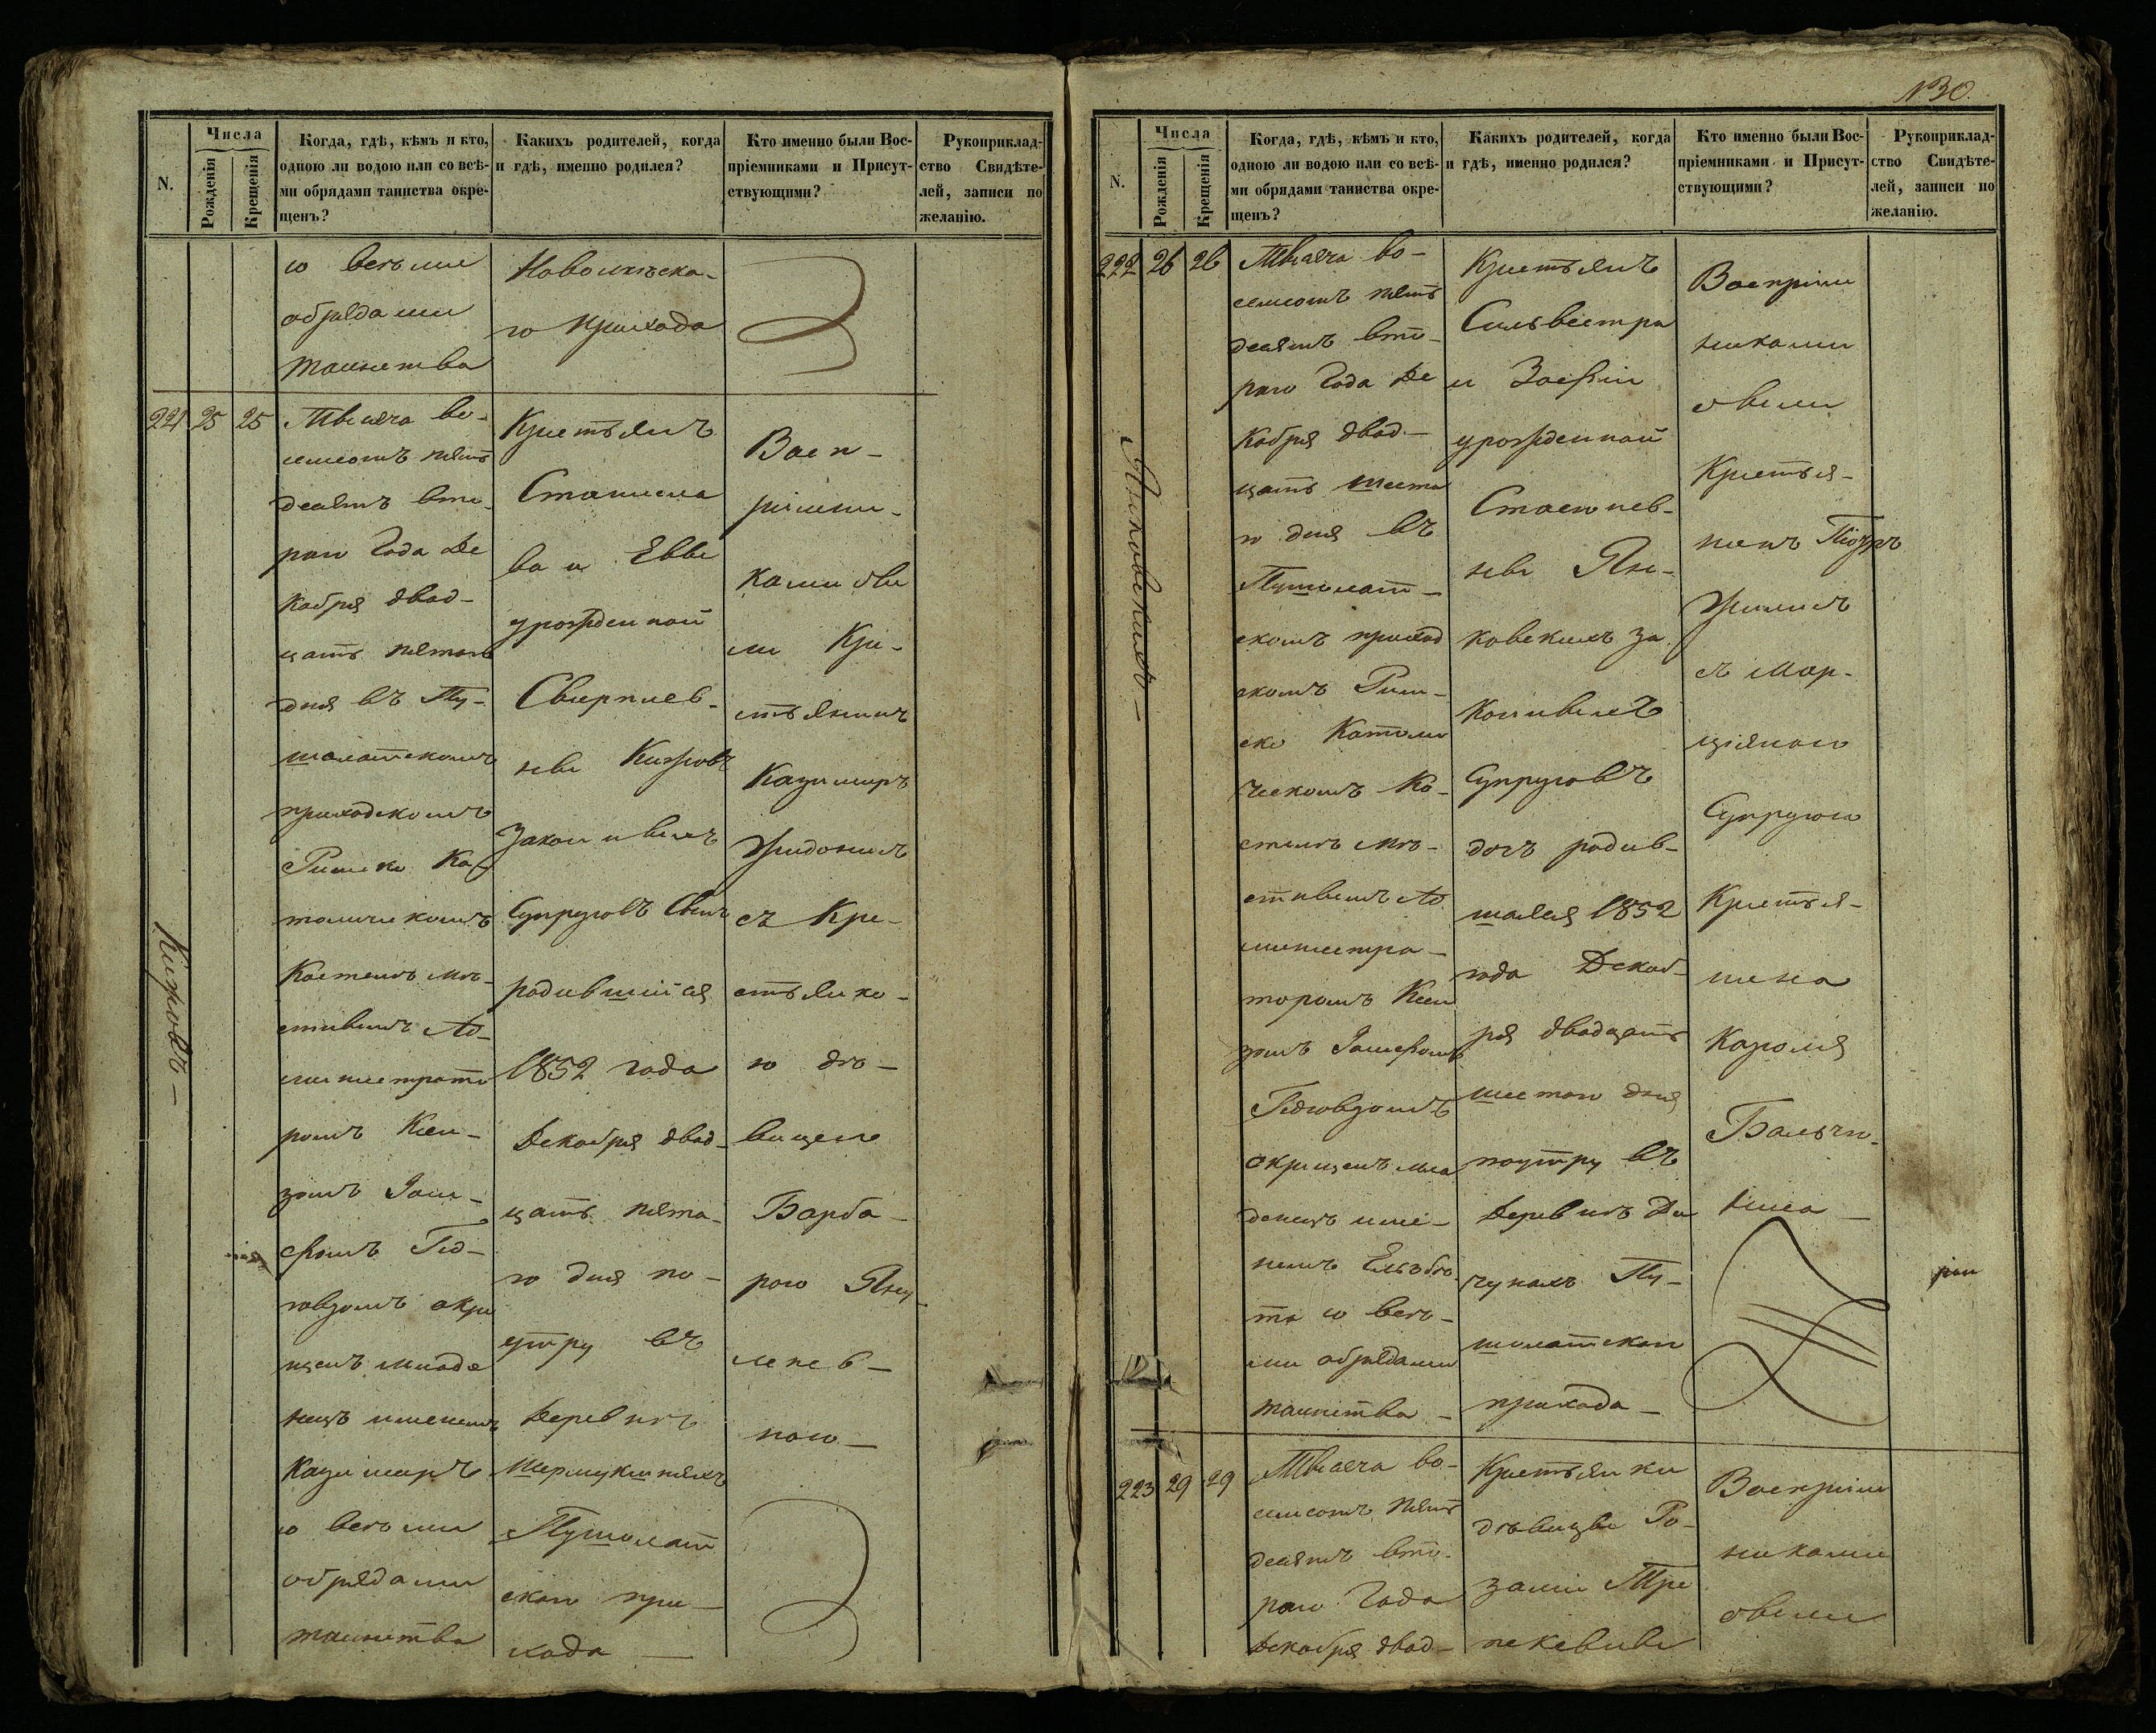 N.
Числа
Рожденія
Крещенія
Когда, гдѣ, кѣмъ и кто,
одною ли водою или со всѣ-
ми обрядами таинства окре-
щенъ?
Какихъ родителей, когда
и гдѣ, именно родился?
Кто именно были Вос-
пріемниками и Присут-
ствующими?
Рукоприклад-
ство Свидѣте-
лей, записи по
желанію.
со всѣми
обрядами
таинства
го прихода
221 25 25
Кизровъ
Тысяча во-
семсотъ пять
десятъ вто-
раго Года Де
кабря двад-
цать пятаго
дня въ Пу-
шолатскомъ
приходскомъ
Римско Ка
толическомъ
Костелѣ мѣ-
стнымъ Ад
министрато
ромъ Ксен-
зомъ Іоси-
фомъ Гед-
говдомъ окре
щенъ младе
нецъ именемъ
Казимиръ
со всѣми
обрядами
таинства
Крестьянъ
Станисла
ва и Еввы
урожденной
нѣ
законныхъ
Супруговъ Сынъ
родившійся
1852 года
Декабря двад-
цать пята-
го дня по-
утру въ
Деревнѣ
Пушолат
скаго при-
хода
Восп-
ріемни-
ками бы
ли Кре-
стьянинъ
Казимиръ
съ Кре-
стьянко-
ю дѣ-
вицею
Барба-
рою
№30.
N.
Числа
Рожденія
Крещенія
Когда, гдѣ, кѣмъ и кто,
одною ли водою или со всѣ-
ми обрядами таинства окре-
щенъ?
Какихъ родителей, когда
и гдѣ, именно родился?
Кто именно были Вос-
пріемниками и Присут-
ствующими?
Рукоприклад-
ство Свидѣте-
лей, записи по
желанію.
222 26 26
Янковскихъ
Тысяча во-
семсотъ пять
десятъ вто-
раго Года Де
кабря двад-
цать шеста
го дня въ
Пушолат-
скомъ приход
скомъ Рим-
ско Католи
ческомъ Ко-
стелѣ мѣ-
стнымъ Ад
министра-
торомъ Ксен
зомъ Іосифомъ
Гедговдомъ
окрещенъ мла
денецъ име-
немъ Ельзбѣ
та со всѣ-
ми обрядами
таинства
Крестьянъ
Сильвестра
и Зофіи
урожденной
нвы Ян-
ковскихъ за
конныхъ
Супруговъ
дочь родив-
шаяся 1852
года Декаб-
ря двадцать
шестаго дня
поутру въ
Деревнѣ
Пу-
шолатскаго
прихода
Воспріем
никами
были
Крестья-
нинъ
съ Мар-
ціянною
Супругою
Крестья-
нина
Кароля
223 29 29
Тысяча во-
семсотъ пять
десятъ вто-
раго Года
Декабря двад-
Крестьянки
дѣвицы Ро-
заліи
Воспріем
никами
были